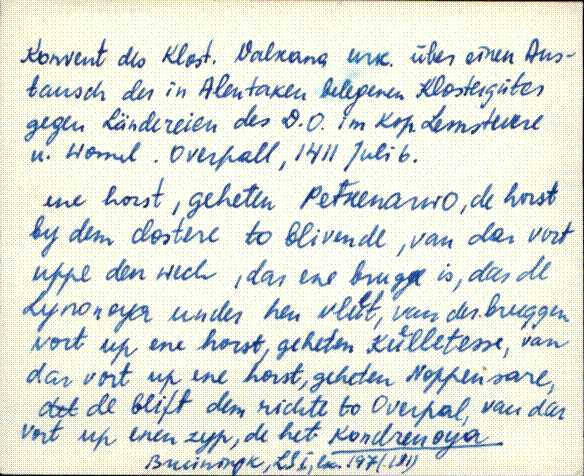 Konvent des Klost. Valkana urk. über einen Aus-
tausch des in Alentaken belegenen Klostergutes
gegen Ländereien des D.O. im Ksp Lemstevere
u. Womel. Overpall, 1411 Juli 6.
ene horst, geheten Petkenarwo, de horst
by dem clostere to blivende, van dar vort
uppe den wech, dar ene brugge is, dar de
Lynonoya under hen vlut, van der bruggen
vort up ene horst, geheten Külletesse, van
dar vort up ene horst, geheten Noppensare,
de blift dem richte to Overpal, van dar
vort up enen zyp, de het Kondrenoya
Bruiningk, LG I, 197 (181)